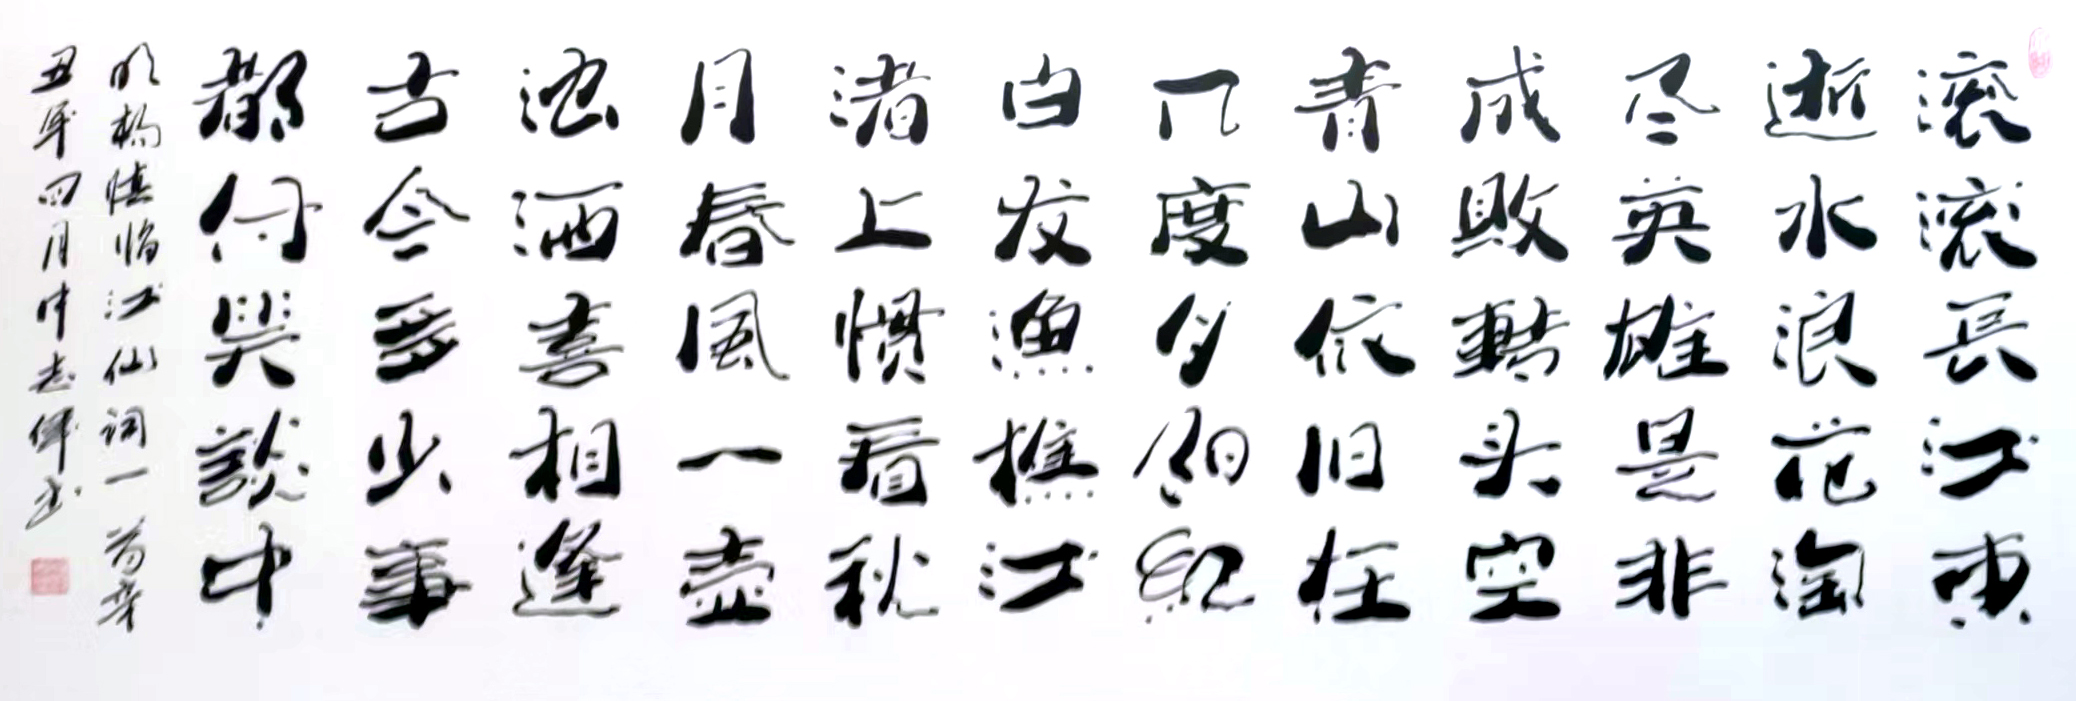 滚滚長江東
逝水浪花淘
尽英雄是非
成敗轉头空
青山依旧在
几度夕陽紅
白发渔樵江
渚上慣看秋
月春風一壶
浊酒喜相逢
古今多少事
都付笑談中
明楊慎临江仙词一首辛
丑年四月中志偉书